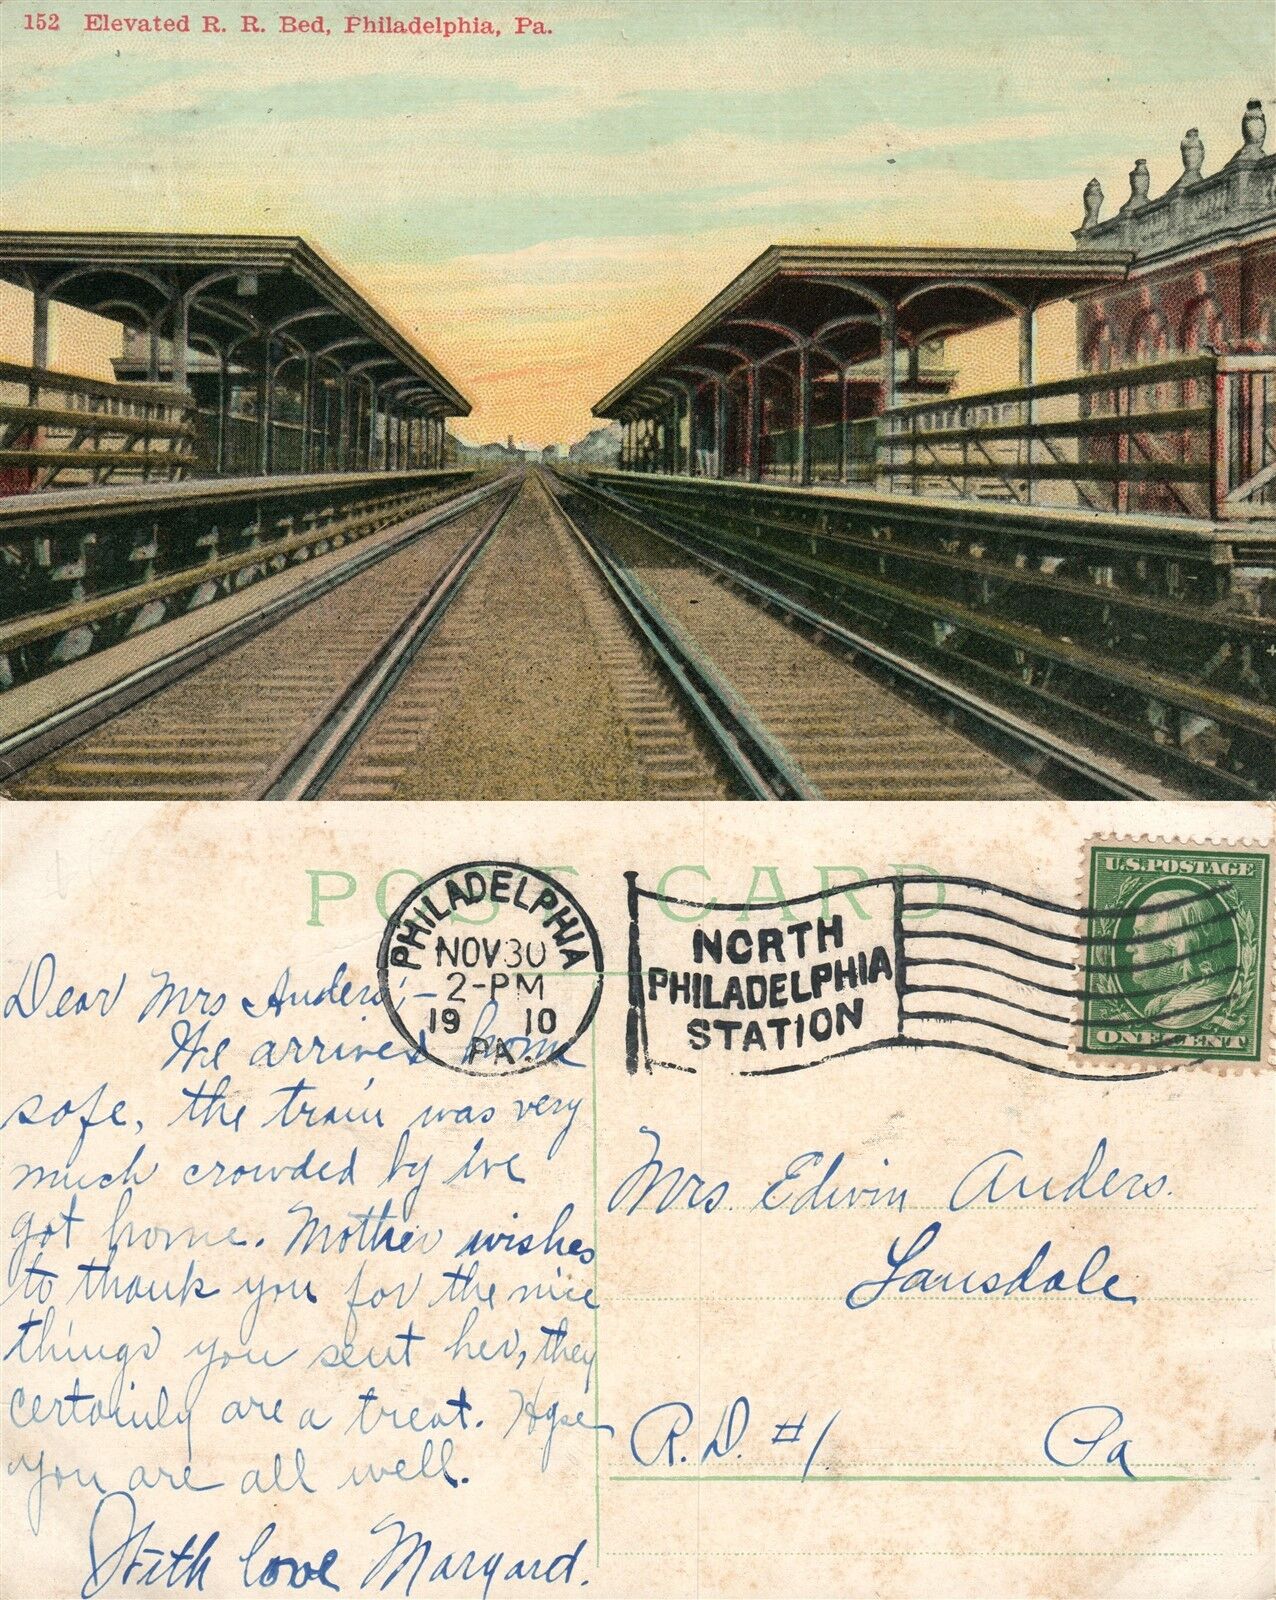 152 Elevated R. R. Bed, Philadelphia, Pa.
POST CARD
PHILADELPHIA
NOV 30
2-PM
19 10
PA.
NORTH
PHILADELPHIA
STATION
U.S. POSTAGE
ONE CENT
Dear Mrs Anders:—
We arrived home
safe, the train was very
much crowded by i've
got home. Mother wishes
to thank you for the nice
things you sent her, they
certainly are a treat. Hope
you are all well.
With love Margard.
Mrs. Edwin Anders.
Lansdale
R.D. #1 Pa